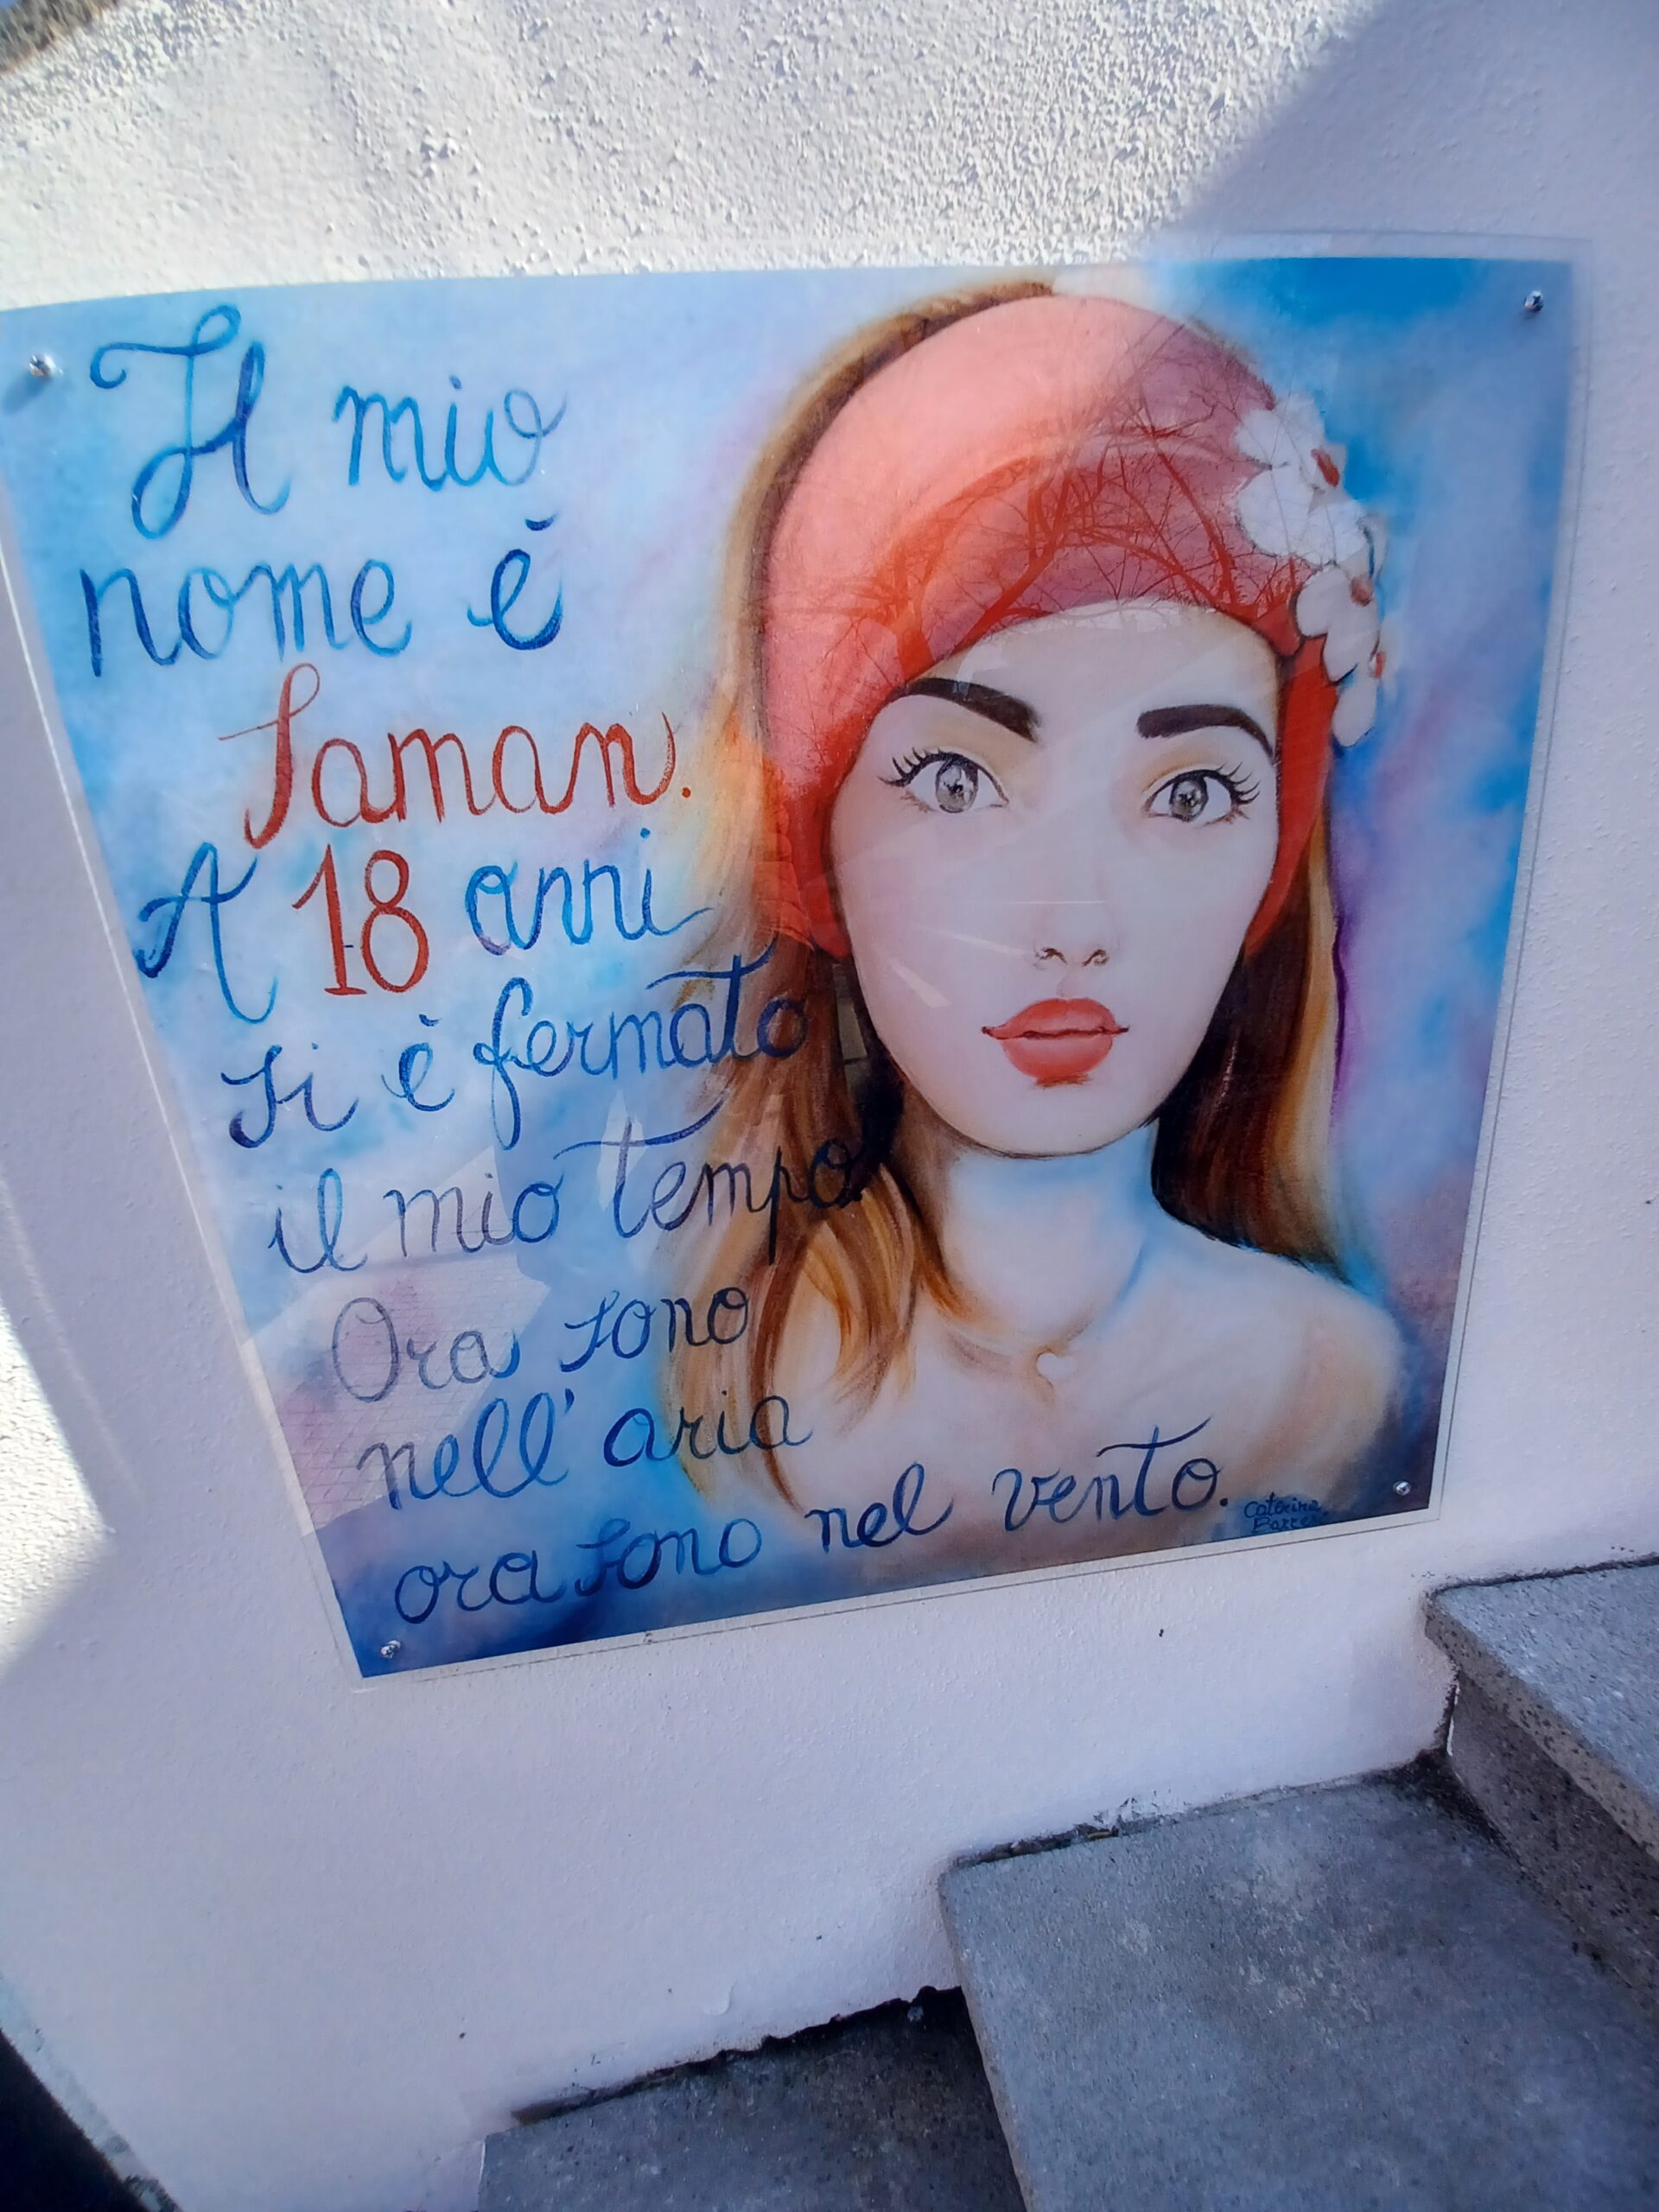 Il mio
nome è
Saman.
A 18 anni
si è fermato
il mio tempo.
Ora sono
nell'aria
ora sono nel vento.
Caterina